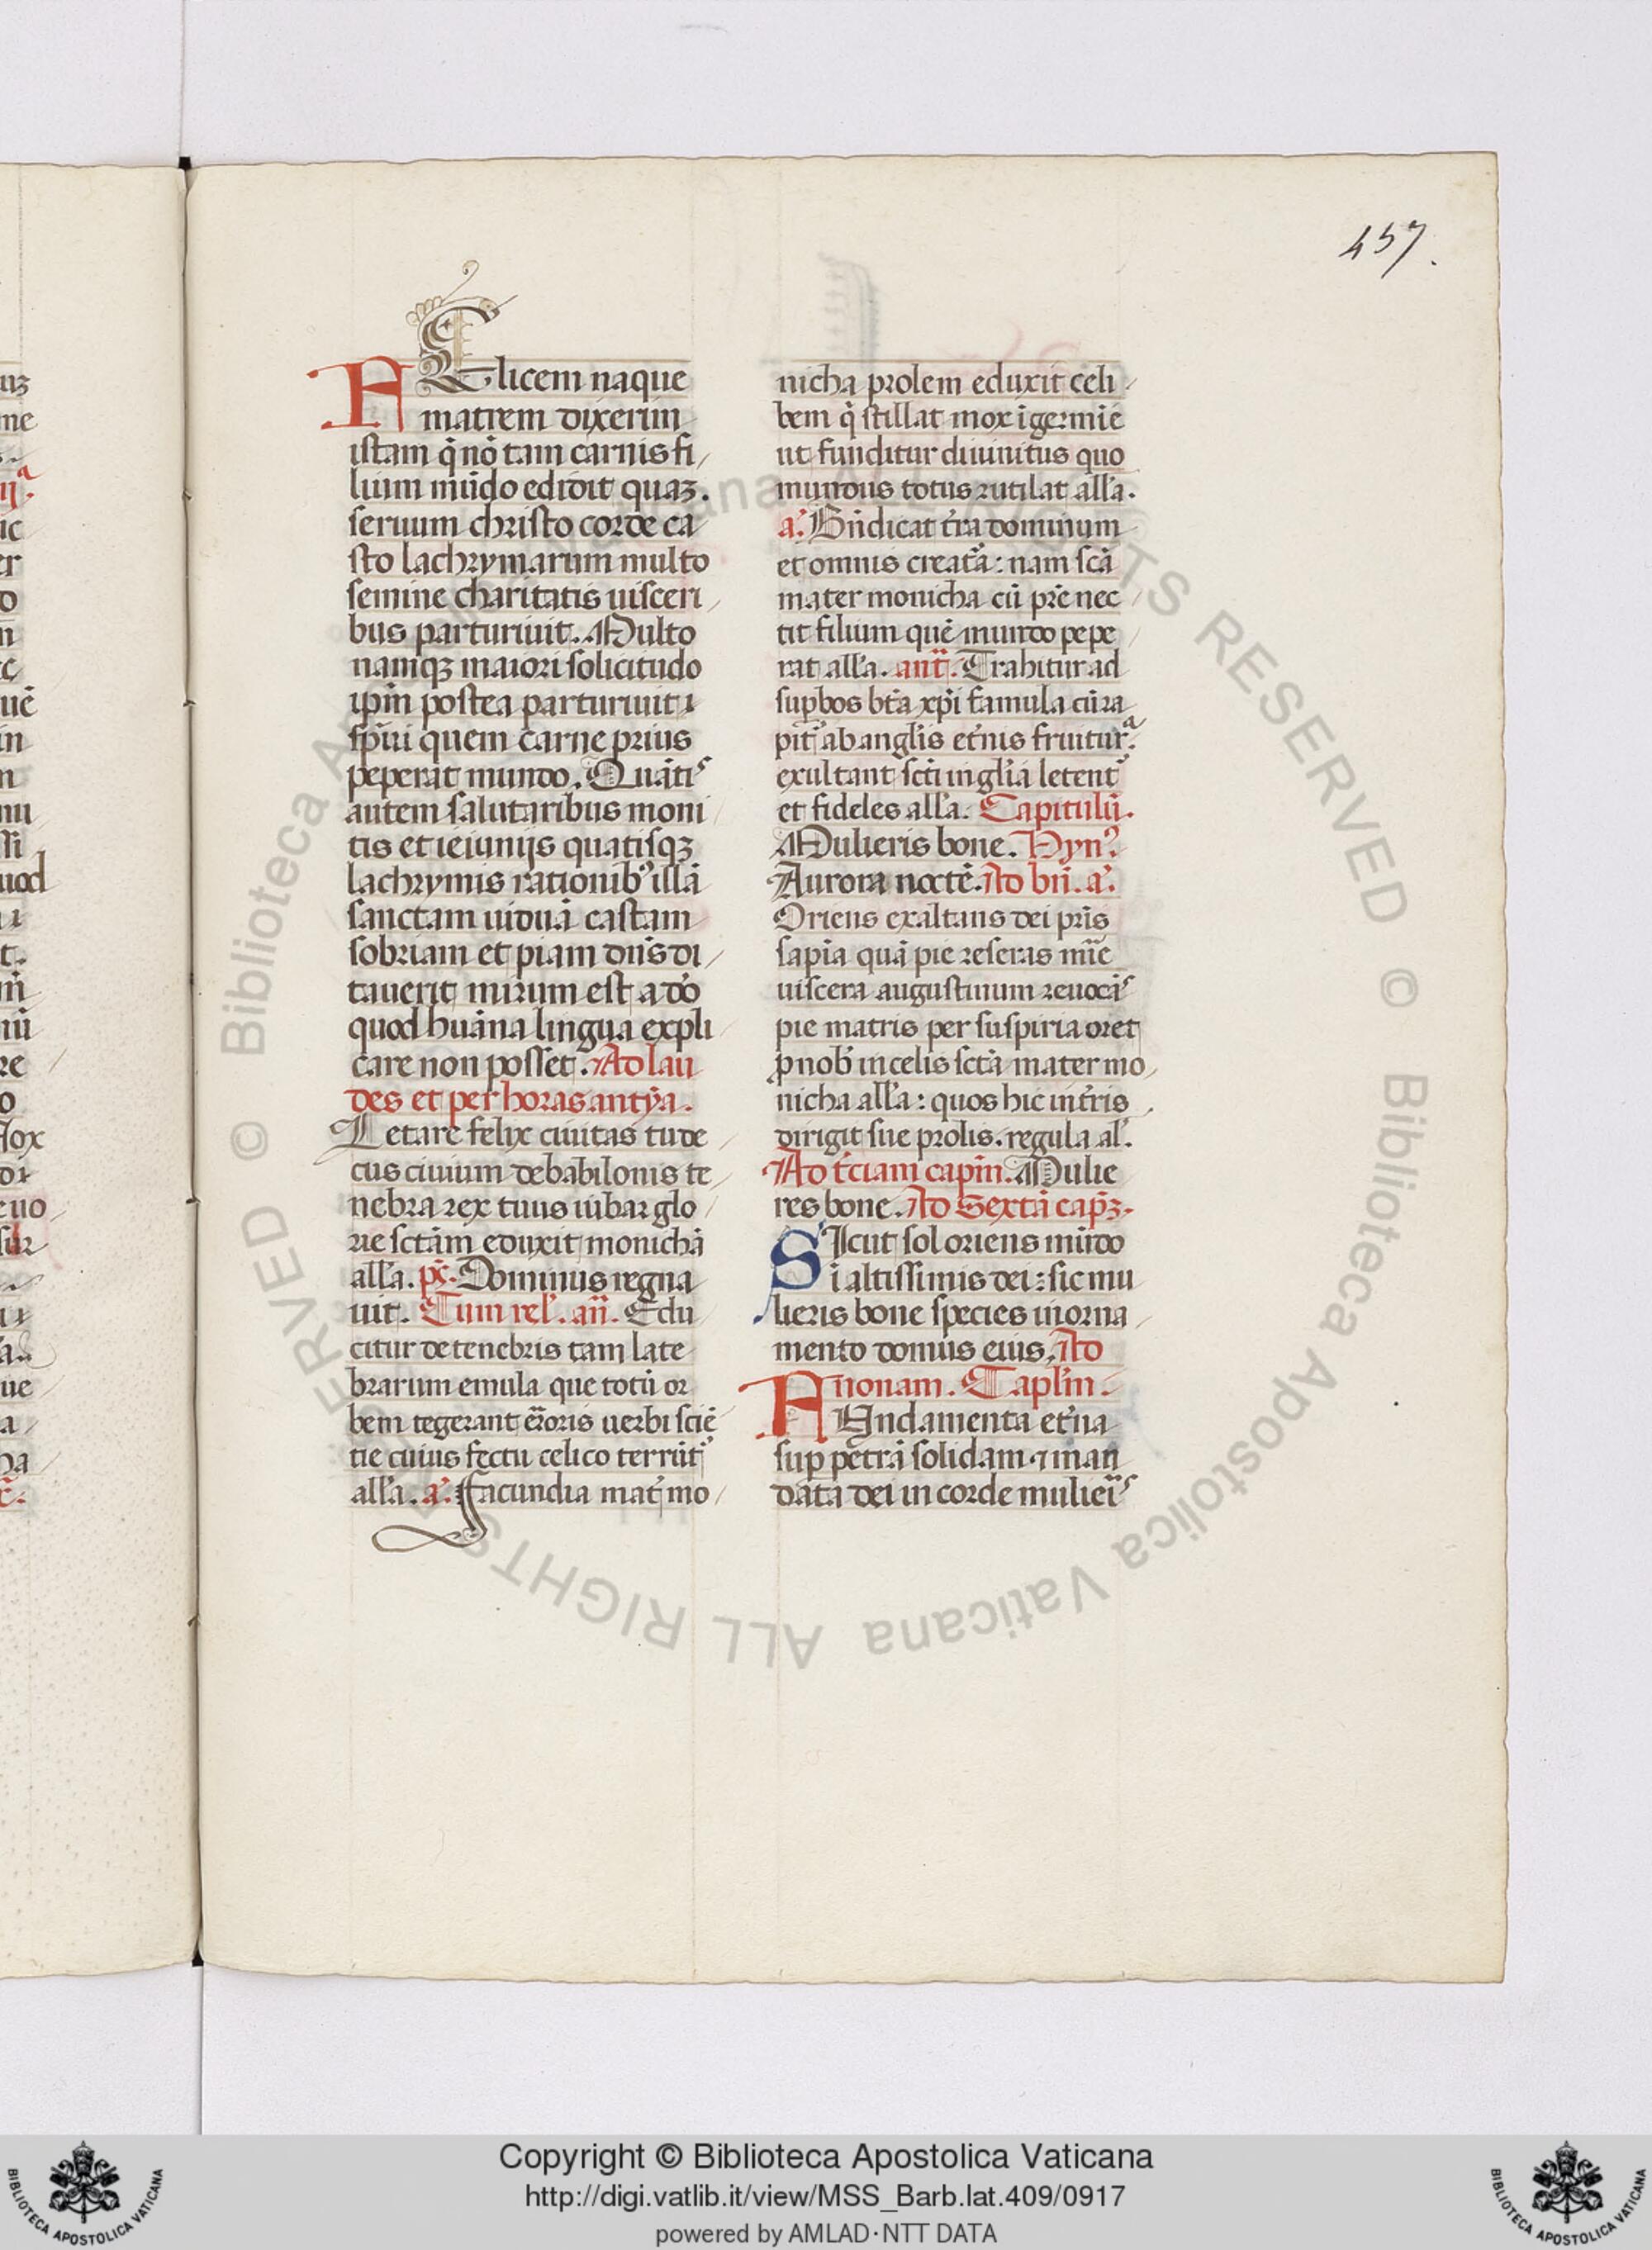 457.
FElicem naque
matrem dixerim
istam q̃ nõ tam carnis fi/
lium mũdo edidit quaꝫ.
seruum christo corde ca
sto lachrymarum multo
semine charitatis uisceri/
bus parturiuit. Multo
namqꝫ maiori solicitudo
ip̃m postea parturiuit
sp̃ui quem carne prius
peperat mundo. Quãtis
autem salutaribus moni/
tis et ieiunijs quatisqꝫ
lachrymis rationib' illã
sanctam uiduã castam
sobriam et piam dñs di/
tauerit mirum est adõ
quod huãna lingua expli
care non posset. Ad lau
des et per horas antỹa.
Letare felix ciuitas tu de/
cus ciuium de babilonis te/
nebra rex tuus iubar glo/
rie sctãm eduxit monichã
all'a. p̃s. Dominus regna
uit. Cum rel'. añ. Edu
citur de tenebris tam late
brarum emula que totũ or
bem tegerant ẽroris uerbi sciẽ
tie cuius fectu celico terrũt'
all'a. a'. Facundia mat' mo/
nicha prolem eduxit celi/
bem q̃ stillat mox ĩ germiẽ
ut funditur diuinitus quo
mundus totus rutilat all'a.
a'. Bñdicat t'ra dominum
et omnis creat'a: nam scã
mater monicha cũ pr̃e nec/
tit filium quẽ mundo pepe/
rat all'a. ant̃. Trahitur ad
sup̱bos bt̃a xp̃i famula cũ ra
pit' ab angl'is et'nis fruitur. a
exultant scti in gl'ia letent'
et fideles all'a. Capitulũ.
Mulieris bone. Hyn'.
Aurora noctẽ. Ad bñ. a'.
Oriens exaltans dei pr̃is
sapĩa quã pie reseras mr̃e
uiscera augustinum reuocãs
pie matris per suspiria oret
p̱ nob' in celis sctã mater mo/
nicha all'a: quos hic int'ris/
dirigit sue prolis. regula al'.
Ad t'ciam capĩm. Mulie
res bone. Ad Sextã cap̃ꝫ.
SIcut sol oriens mũdo
ĩ altissimis dei: sic mu
lieris bone species in orna/
mento domus eius. Ad
nonam. Capl'm.
FUndamenta et'na
sup̱ petrã solidam ⁊ man
data dei in corde muliẽis
uꝫ
ne
ic
er
o
n
uẽ
in
n
nu
ssi
uod
re
o
lox
euo
ue
a
ha
© Biblioteca Apostolica Vaticana ALL RIGHTS RESERVED © Biblioteca Apostolica Vaticana ALL RIGHTS RESERVED
Copyright © Biblioteca Apostolica Vaticana
http://digi.vatlib.it/view/MSS_Barb.lat.409/0917
powered by AMLAD·NTT DATA
BIBLIOTECA APOSTOLICA VATICANA
BIBLIOTECA APOSTOLICA VATICANA